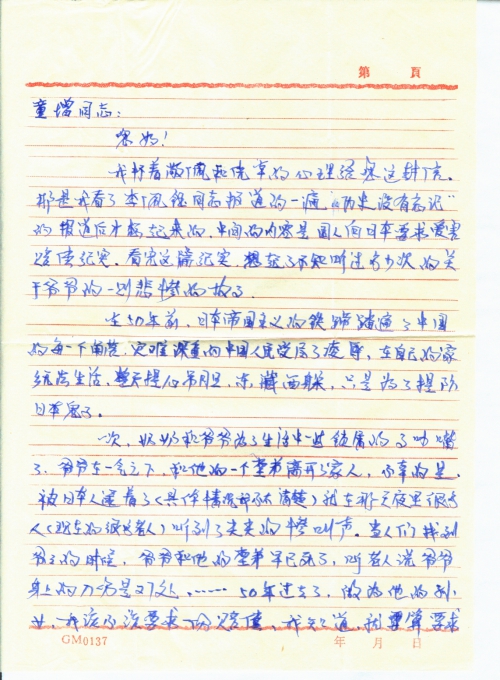 第 頁
童增同志：
您好！
我怀着敬佩和沉重的心理给您这封信。
那是我看了李佩钰同志报道的一遍“历史没有忘记”
的报道后才写起来的，中间的内容是国人向日本要求受害
赔偿纪实。看完这篇纪实，想起了不知听过多少次的关
于爷爷的一则悲惨的故事。
在50年前，日本帝国主义的铁蹄踏遍了中国
的每一个角落，灾难深重的中国人民受尽了凌辱，在自己的家
无法生活，整天提心吊胆，东藏西躲，只是为了提防
日本鬼子。
一次，奶奶和爷爷为了生活中一些琐事的事吵嘴
了，爷爷在一气之下，和他的一个堂弟离开了家人，不幸的是
被日本人逮着了（具体情况都不清楚）就在那天夜里很多
人（现在的很老人）听到了尖尖的惨叫声。当人们找到
爷爷的时候，爷爷和他的堂弟早已死了，听老人说爷爷
身上的刀伤是27处，…… 50年过去了，做为他的孙
女，我该不该要求一份赔偿，我知道，就要算要求
GM0137 年 月 日